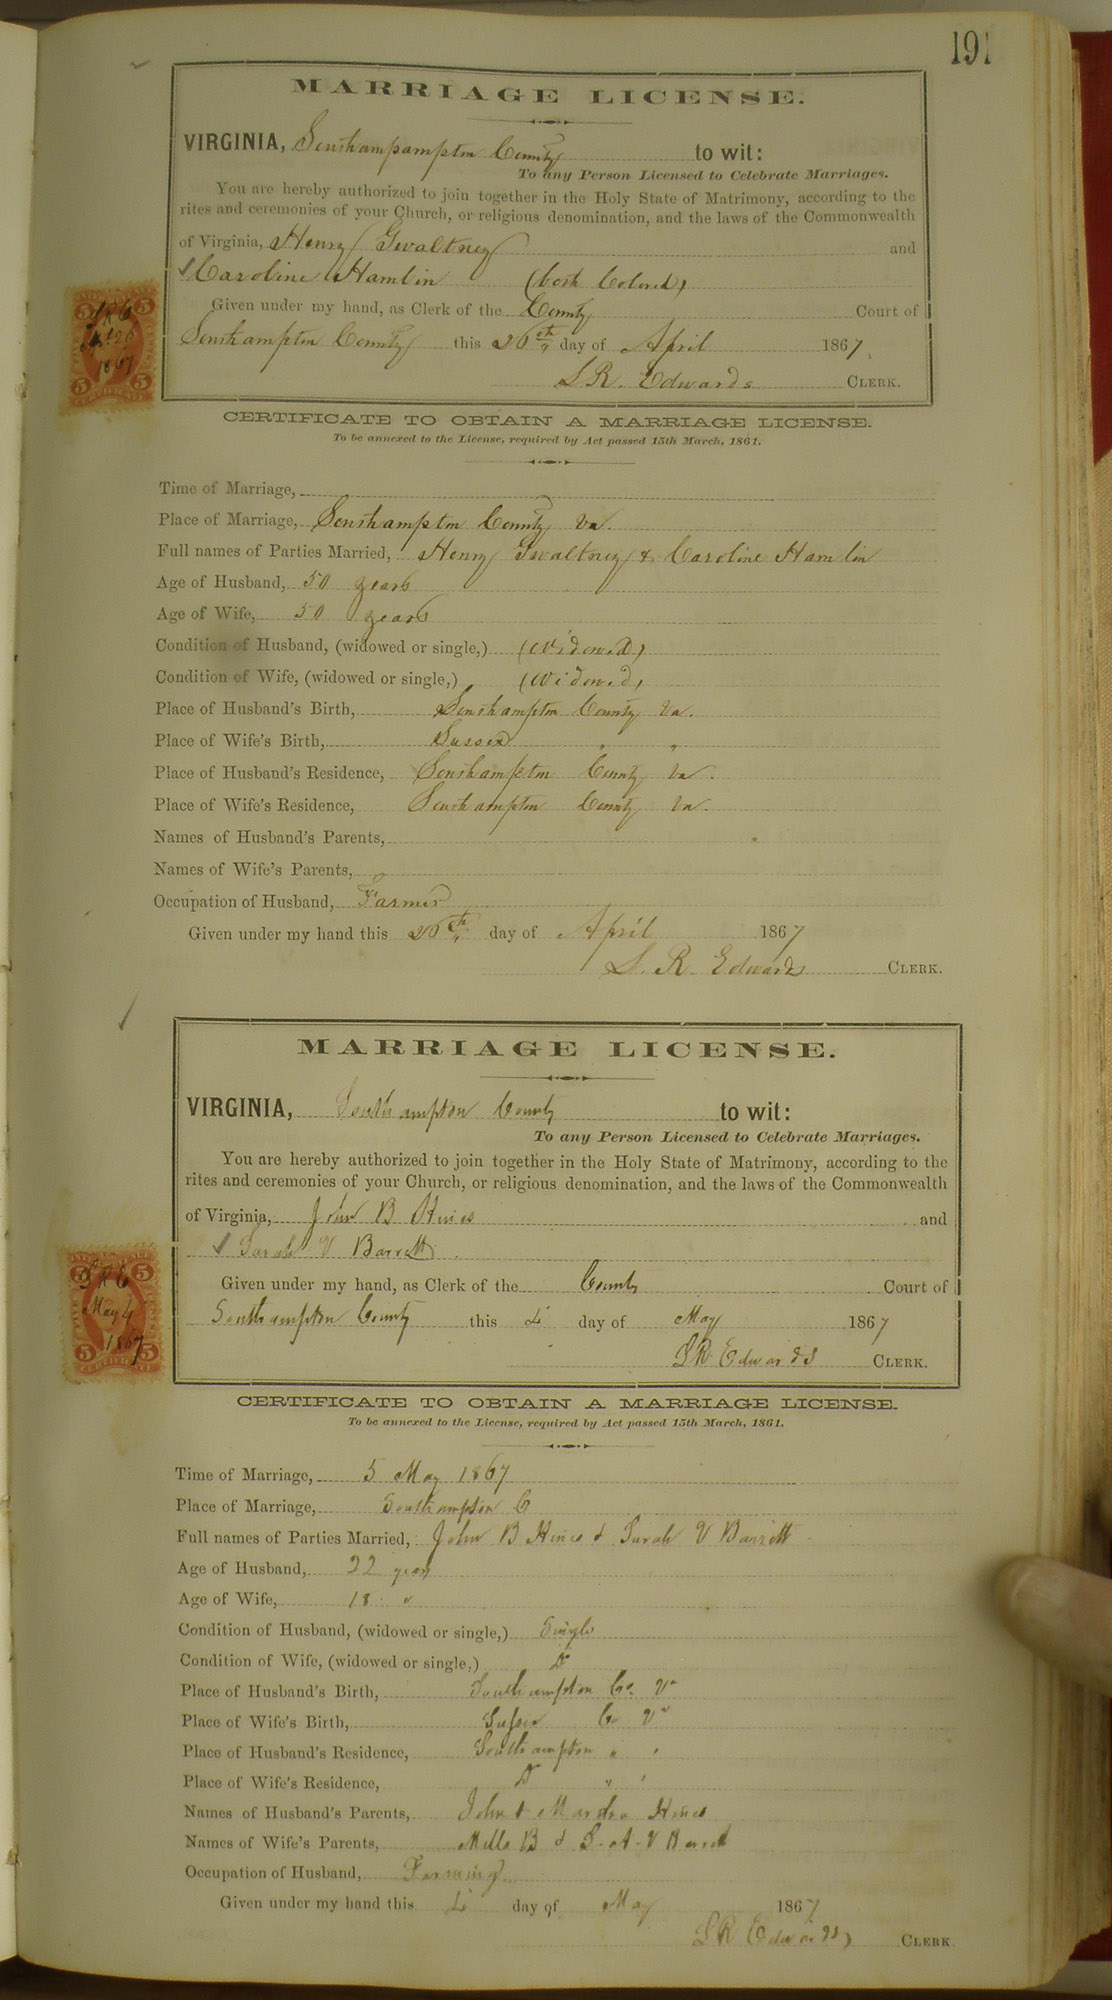 191
MARRIAGE LICENSE.
VIRGINIA, Southampampton County to wit:
To any Person Licensed to Celebrate Marriages.
You are hereby authorized to join together in the Holy State of Matrimony, according to the
rites and ceremonies of your Church, or religious denomination, and the laws of the Commonwealth
of Virginia, Henry Gwaltney and
Caroline Hamlin (both Colored)
Given under my hand, as Clerk of the County Court of
Southampton County this 26th day of April 1867.
L R. Edwards CLERK.
5 5
LRE
26
1867
5 5
CERTIFICATE
CERTIFICATE TO OBTAIN A MARRIAGE LICENSE.
To be annexed to the License, required by Act passed 15th March, 1861.
Time of Marriage,
Place of Marriage, Southampton County Va.
Full names of Parties Married, Henry Gwaltney & Caroline Hamlin
Age of Husband, 50 years
Age of Wife, 50 years
Condition of Husband, (widowed or single,) (Widowed)
Condition of Wife, (widowed or single,) (Widowed)
Place of Husband's Birth, Southampton County Va.
Place of Wife's Birth, Sussex " "
Place of Husband's Residence, Southampton County Va.
Place of Wife's Residence, Southampton County Va.
Names of Husband's Parents,
Names of Wife's Parents,
Occupation of Husband, Farmer
Given under my hand this 26th day of April 1867
L. R. Edwards CLERK.
MARRIAGE LICENSE.
VIRGINIA, Southampton County to wit:
To any Person Licensed to Celebrate Marriages.
You are hereby authorized to join together in the Holy State of Matrimony, according to the
rites and ceremonies of your Church, or religious denomination, and the laws of the Commonwealth
of Virginia, John B Hines and
Sarah V Barrett
Given under my hand, as Clerk of the County Court of
Southampton County this 4 day of May 1867
LR Edwards CLERK.
5 5
LRE
May 4
1867
5 5
CERTIFICATE
CERTIFICATE TO OBTAIN A MARRIAGE LICENSE.
To be annexed to the License, required by Act passed 15th March, 1861.
Time of Marriage, 5 May 1867
Place of Marriage, Southampton C
Full names of Parties Married, John B Hines & Sarah V Barrett
Age of Husband, 22 years
Age of Wife, 18 "
Condition of Husband, (widowed or single,) Single
Condition of Wife, (widowed or single,) Do
Place of Husband's Birth, Southampton Co. Va
Place of Wife's Birth, Sussex Co Va
Place of Husband's Residence, Southampton " "
Place of Wife's Residence, Do " "
Names of Husband's Parents, John & Hines
Names of Wife's Parents, Mills B & S. A. V Barrett
Occupation of Husband, Farming
Given under my hand this 4 day of May 1867
LR Edwards CLERK.